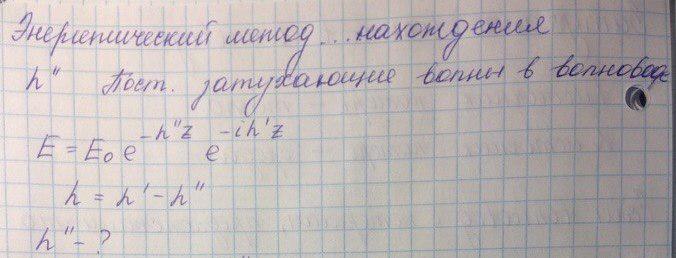 Энергетический метод... нахождения
h" Пост. затухающие волны в волноводе
E = E₀ e^{-h"z} e^{-ih'z}
h = h' - h"
h" - ?